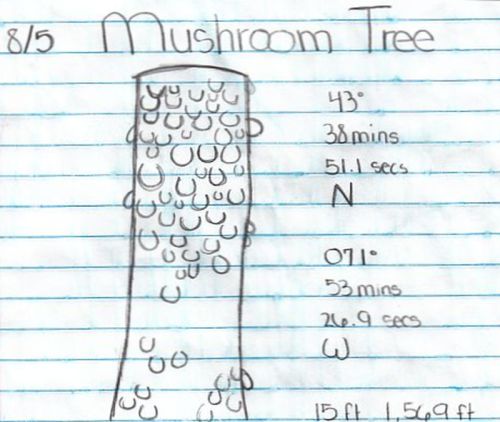 8/5 Mushroom Tree
43°
38mins
51.1 secs
N
071°
53 mins
26.9 secs
W
15ft 1,569 ft